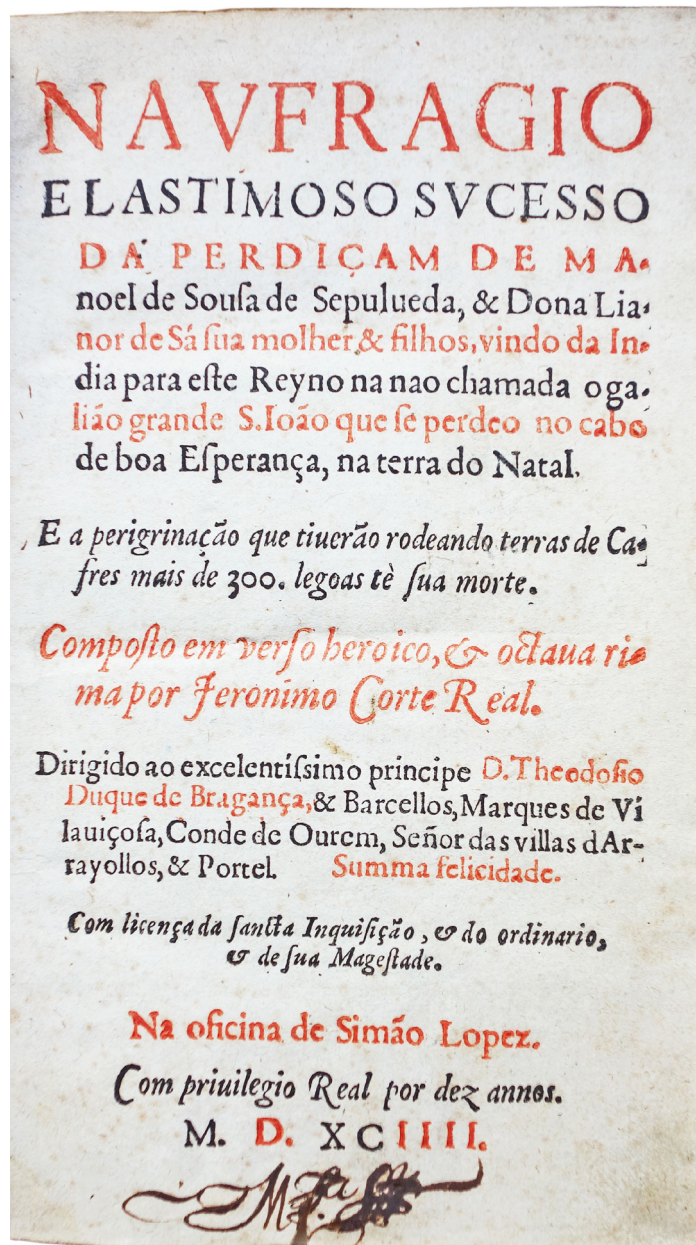 NAVFRAGIO
E LASTIMOSO SVCESSO
DA PERDIÇAM DE MA-
noel de Souſa de Sepulueda, & Dona Lia-
nor de Sá ſua molher, & filhos, vindo da In-
dia para eſte Reyno na nao chamada o ga-
lião grande S. Ioão que ſe perdeo no cabo
de boa Eſperança, na terra do Natal.
E a perigrinação que tiuerão rodeando terras de Ca-
fres mais de 300. legoas tè ſua morte.
Compoſto em verſo heroico, & octaua ri-
ma por Jeronimo Corte Real.
Dirigido ao excelentiſsimo principe D. Theodoſio
Duque de Bragança, & Barcellos, Marques de Vi
lauiçoſa, Conde de Ourem, Señor das villas dAr-
rayollos, & Portel. Summa felicidade.
Com licença da ſancta Inquiſição, & do ordinario,
& de ſua Mageſtade.
Na oficina de Simão Lopez.
Com priuilegio Real por dez annos.
M. D. XCIIII.